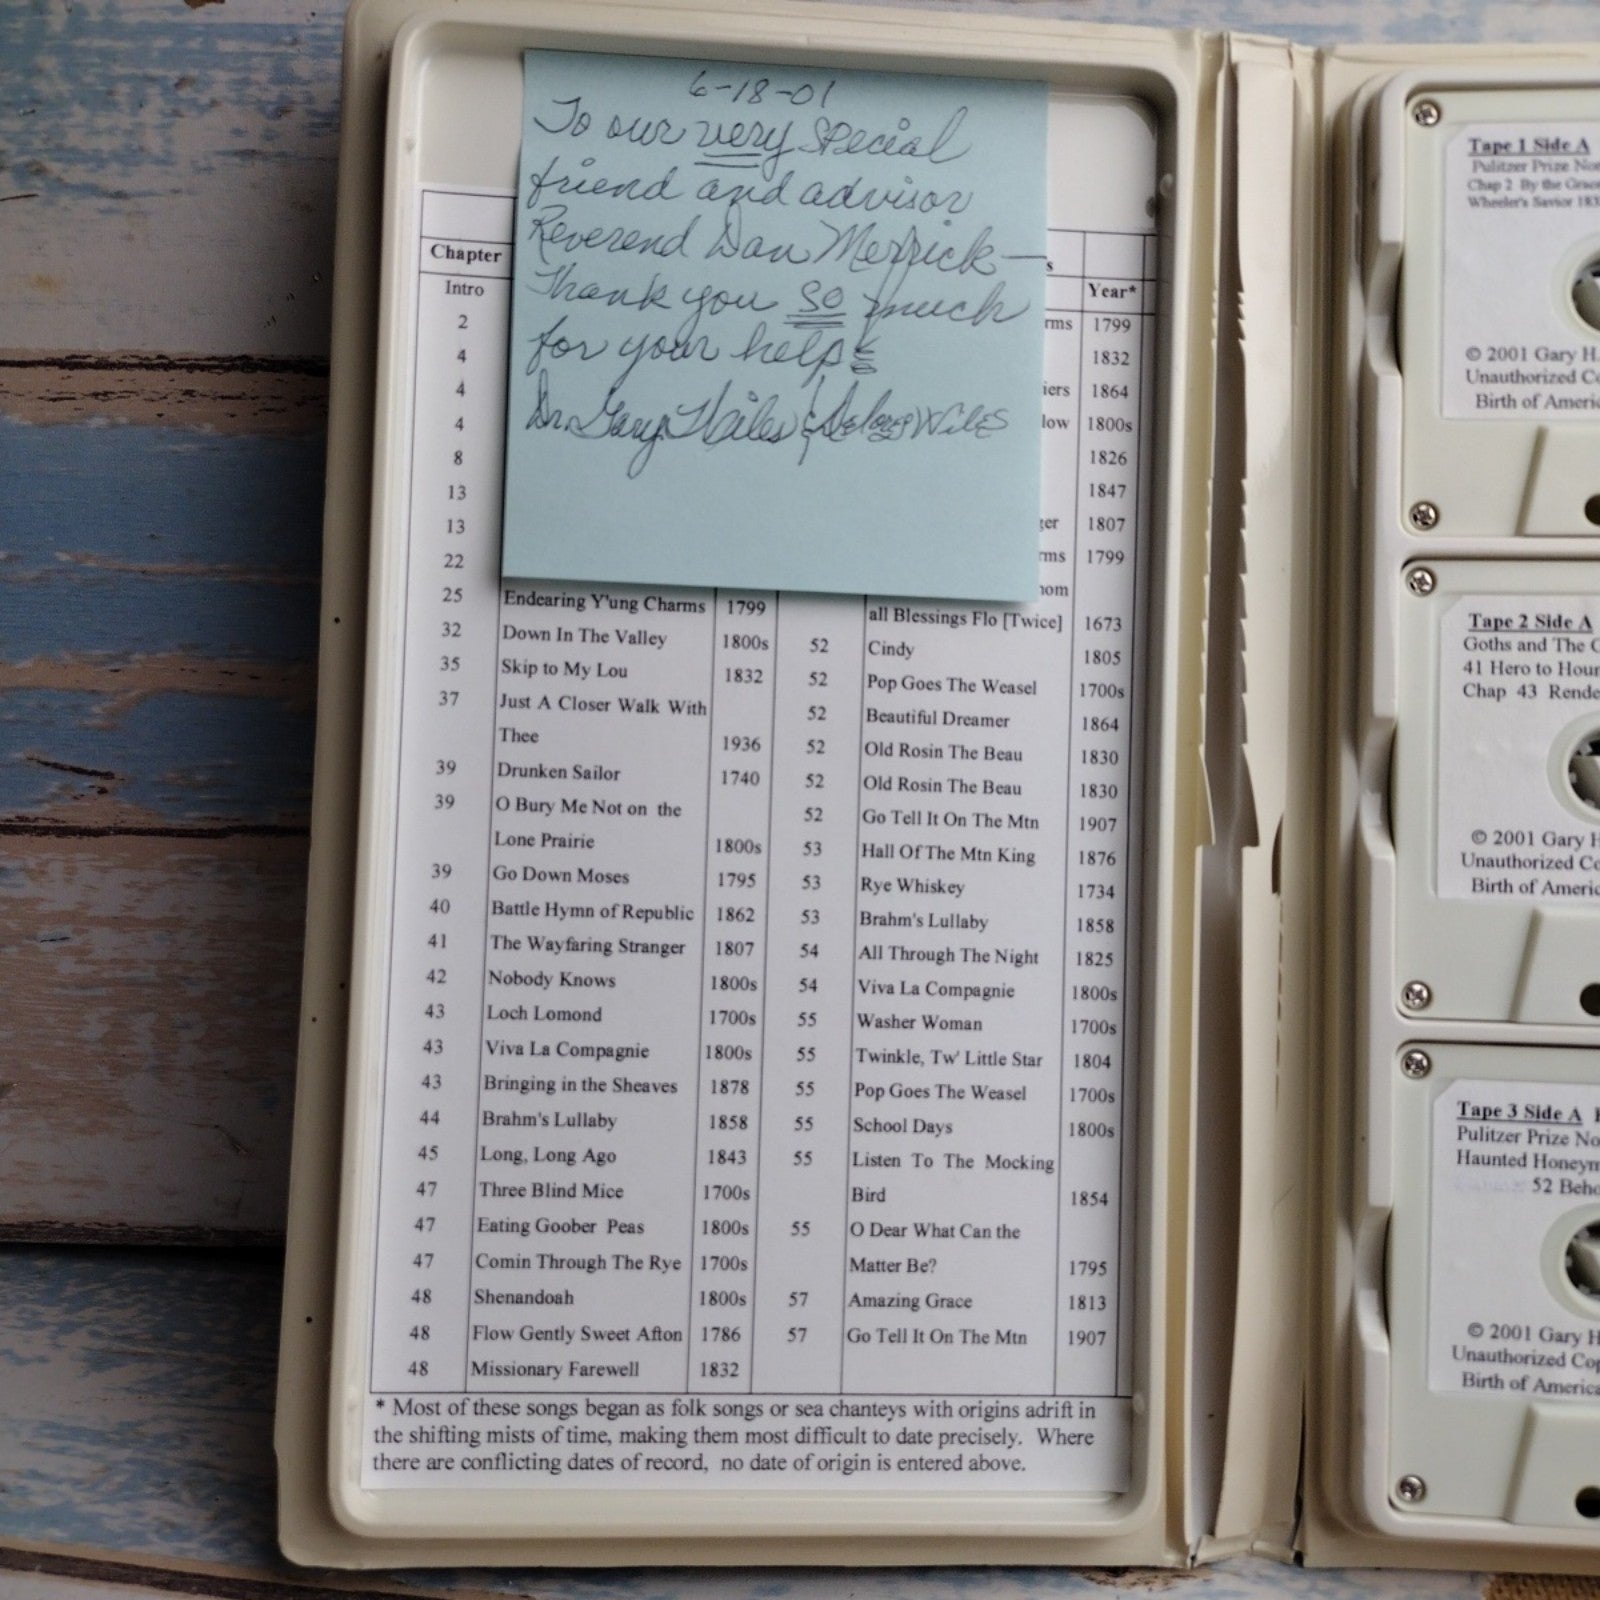 6-18-01
To our very special
friend and advisor
Reverend Dan Merrick—
Thank you so much
for your help
Dr. Gary Wiles & Wiles
Chapter
Intro
2
4
4
4
8
13
13
22
25 Endearing Y'ung Charms 1799
32 Down In The Valley 1800s
35 Skip to My Lou 1832
37 Just A Closer Walk With
Thee 1936
39 Drunken Sailor 1740
39 O Bury Me Not on the
Lone Prairie 1800s
39 Go Down Moses 1795
40 Battle Hymn of Republic 1862
41 The Wayfaring Stranger 1807
42 Nobody Knows 1800s
43 Loch Lomond 1700s
43 Viva La Compagnie 1800s
43 Bringing in the Sheaves 1878
44 Brahm's Lullaby 1858
45 Long, Long Ago 1843
47 Three Blind Mice 1700s
47 Eating Goober Peas 1800s
47 Comin Through The Rye 1700s
48 Shenandoah 1800s
48 Flow Gently Sweet Afton 1786
48 Missionary Farewell 1832
s Year*
rms 1799
1832
iers 1864
low 1800s
1826
1847
ger 1807
rms 1799
hom
all Blessings Flo [Twice] 1673
52 Cindy 1805
52 Pop Goes The Weasel 1700s
52 Beautiful Dreamer 1864
52 Old Rosin The Beau 1830
52 Old Rosin The Beau 1830
52 Go Tell It On The Mtn 1907
53 Hall Of The Mtn King 1876
53 Rye Whiskey 1734
53 Brahm's Lullaby 1858
54 All Through The Night 1825
54 Viva La Compagnie 1800s
55 Washer Woman 1700s
55 Twinkle, Tw' Little Star 1804
55 Pop Goes The Weasel 1700s
55 School Days 1800s
55 Listen To The Mocking
Bird 1854
55 O Dear What Can the
Matter Be? 1795
57 Amazing Grace 1813
57 Go Tell It On The Mtn 1907
* Most of these songs began as folk songs or sea chanteys with origins adrift in
the shifting mists of time, making them most difficult to date precisely. Where
there are conflicting dates of record, no date of origin is entered above.
Tape 1 Side A
Pulitzer Prize No
Chap 2 By the Grac
Wheeler's Savior 183
© 2001 Gary H.
Unauthorized Co
Birth of Americ
Tape 2 Side A
Goths and The
41 Hero to Hour
Chap 43 Rende
© 2001 Gary H
Unauthorized Co
Birth of Americ
Tape 3 Side A
Pulitzer Prize No
Haunted Honeym
52 Beho
© 2001 Gary H
Unauthorized Cop
Birth of America